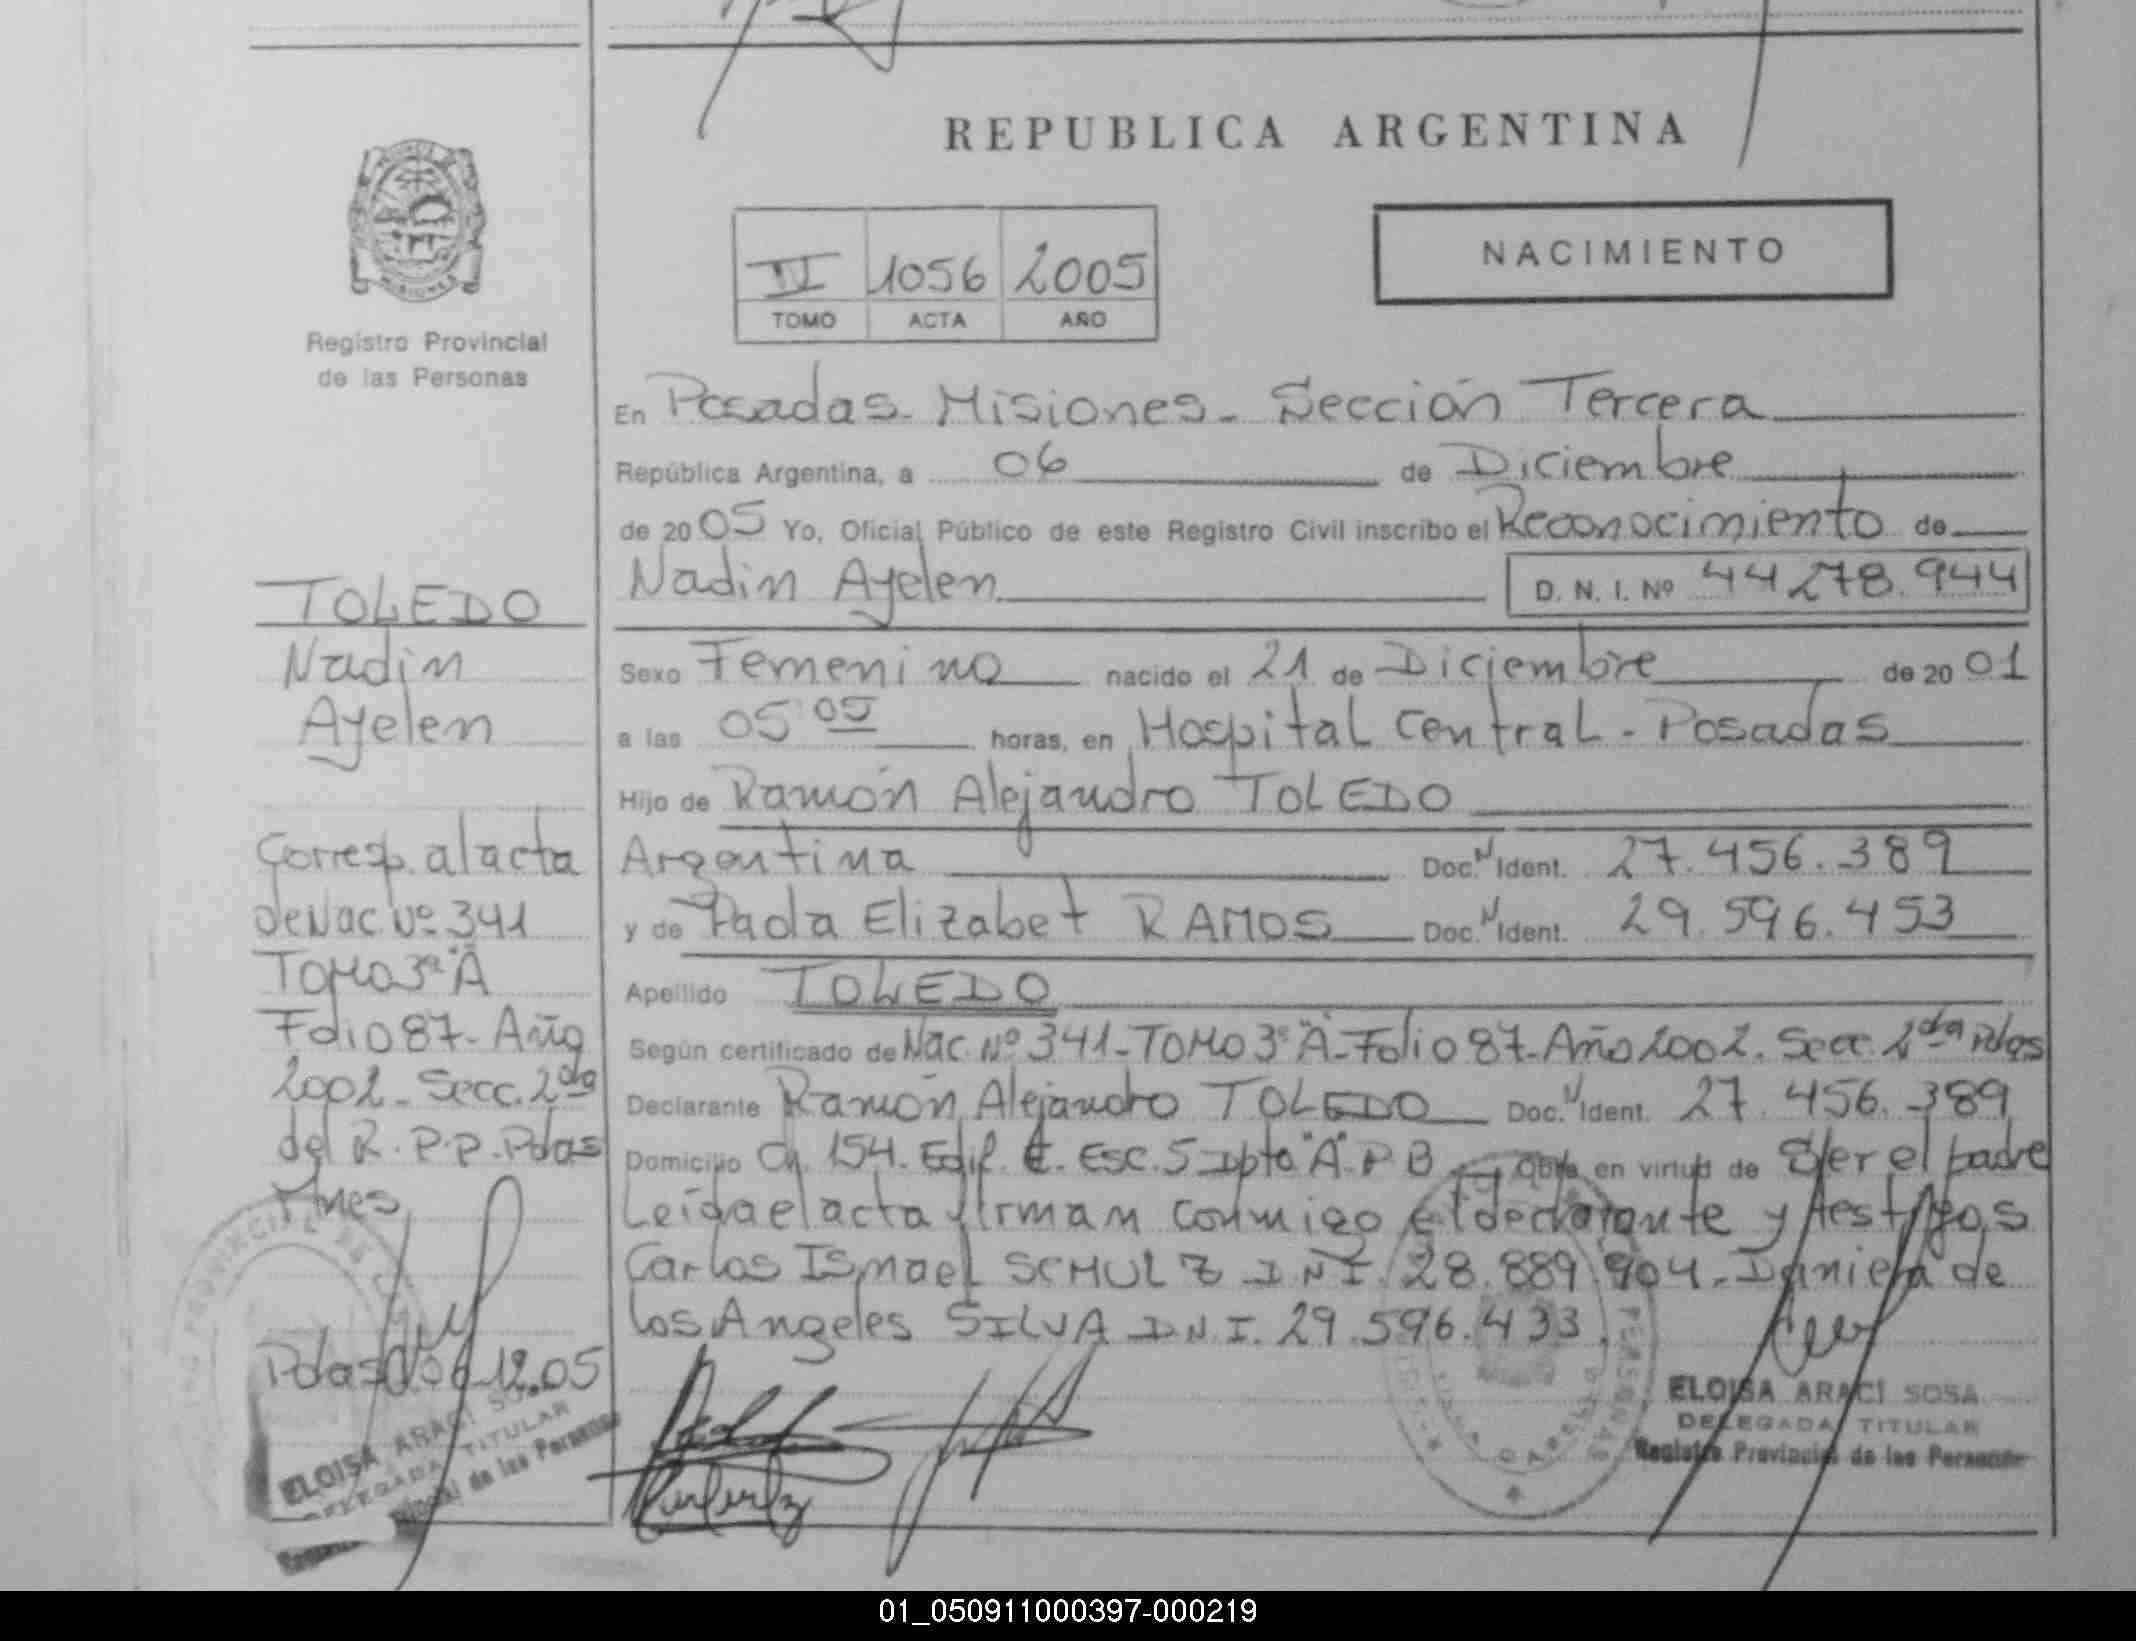 REPUBLICA ARGENTINA
NACIMIENTO
1056 2005
TOMO ACTA AÑO
MISIONES
Registro Provincial
de las Personas
En Posadas - Misiones - Sección Tercera
República Argentina, a 06 de Diciembre
de 2005 Yo, Oficial Público de este Registro Civil inscribo el Reconocimiento de
Nadin Ayelen D. N. I. Nº 44278.944
Sexo Femenino nacido el 21 de Diciembre de 2001
a las 05 05 horas, en Hospital Central - Posadas
Hijo de Ramón Alejandro TOLEDO
Argentina Doc. N Ident. 27.456.389
y de Paola Elizabet RAMOS Doc. N Ident. 29.596.453
Apellido TOLEDO
Según certificado de Nac. Nº 341 - TOMO 3º "A" - Folio 87 - Año 2002. Secc. 2da Pdas
Declarante Ramón Alejandro TOLEDO Doc. N Ident. 27.456.389
Domicilio Ch. 154. Edif. E. Esc. 5 Dpto "A" P B en virtud de Ser el padre
Leída el acta firman conmigo el declarante y testigos
Carlos Ismael SCHULZ D.N.I. 28.889.904. Daniela de
los Angeles SILVA D.N.I. 29.596.433.
ELOISA ARACI SOSA
DELEGADA TITULAR
Registro Provincial de las Personas
TOLEDO
Nadin
Ayelen
Corresp. al acta
de Nac. Nº 341
TOMO 3º "A"
Folio 87 - Año
2002 - Secc. 2da
del R.P.P. Pdas
Mnes
Pdas 06.12.05
ELOISA ARACI SOSA
DELEGADA TITULAR
de las Personas
01_050911000397-000219